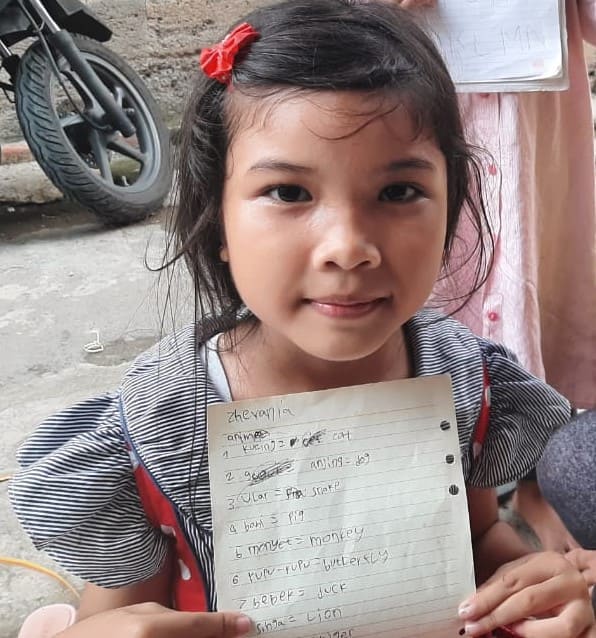 zherania
1 kucing = cat
2 anjing = dog
3 ular = snake
4 babi = pig
5 monyet = monkey
6 kupu-kupu = butterfly
7 bebek = duck
singa = Lion